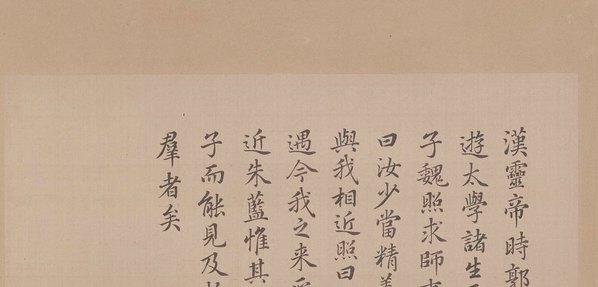 漢靈帝時郭
遊太學諸生
子魏照求師
曰汝少當精義
與我相近照曰
遇今我之来
近朱藍惟其
子而能見及
羣者矣